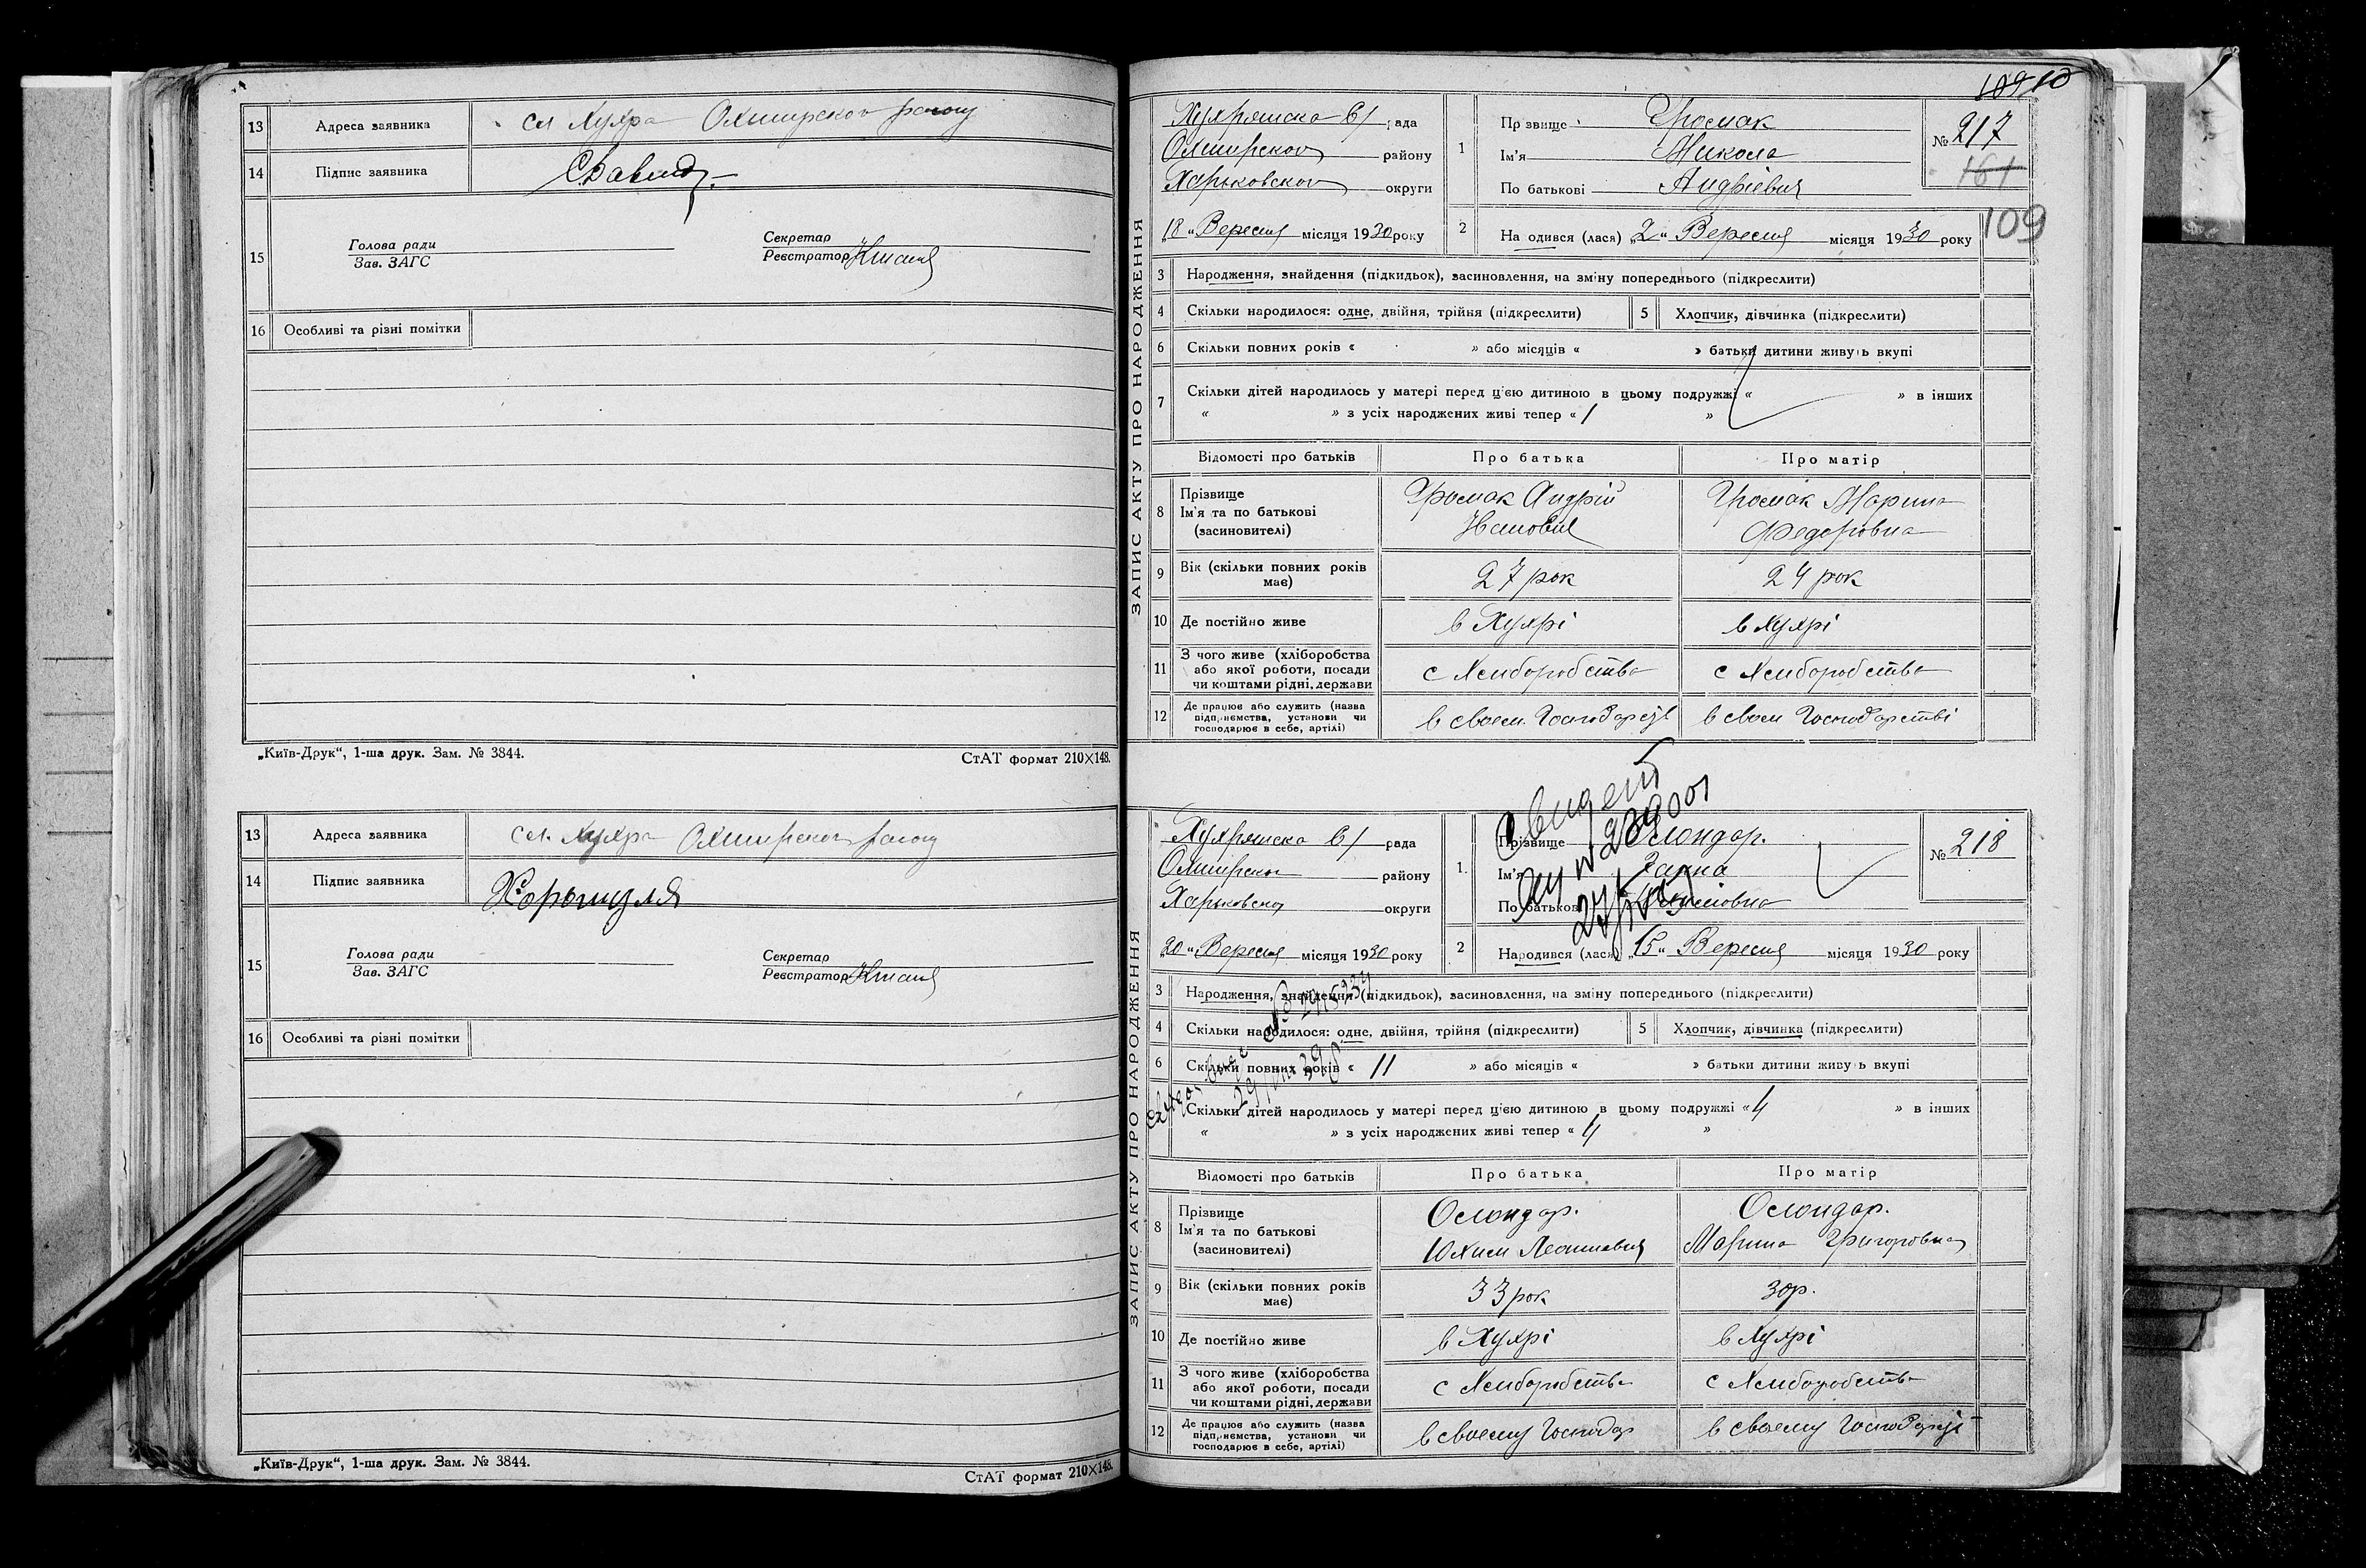 13 Адреса заявника сл Хухра Охтирского району
14 Підпис заявника
15 Голова ради
Зав. ЗАГС
Секретар
Реєстратор
16 Особливі та різні помітки
„Київ-Друк“, 1-ша друк. Зам. № 3844.
СтАТ формат 210×148.
13 Адреса заявника сл. Хухра Охтирского району
14 Підпис заявника
15 Голова ради
Зав. ЗАГС
Секретар
Реєстратор
16 Особливі та різні помітки
„Київ-Друк“, 1-ша друк. Зам. № 3844.
СтАТ формат 210×148.
109
ЗАПИС АКТУ ПРО НАРОДЖЕННЯ
Хухрянска с/ рада
Охтирского району
Харьковского округи
„18“ Вересня місяця 1930 року
1 Прізвище Громак
Ім'я Микола
По батькові Андрієвич
№ 217
161
109
2 Народився (лася) „2“ Вересня місяця 1930 року
3 Народження, знайдення (підкидьок), засиновлення, на зміну попереднього (підкреслити)
4 Скільки народилося: одне, двійня, трійня (підкреслити) 5 Хлопчик, дівчинка (підкреслити)
6 Скільки повних років « » або місяців « » батьки дитини живуть вкупі
7 Скільки дітей народилось у матері перед ц'єю дитиною в цьому подружжі « » в інших
« » з усіх народжених живі тепер « 1 »
Відомості про батьків Про батька Про матір
8 Прізвище
Ім'я та по батькові
(засиновителі)
Громак Андрій
Иванович
Громак Марина
Федоровна
9 Вік (скільки повних років має) 27 рок 24 рок
10 Де постійно живе в Хухрі в Хухрі
11 З чого живе (хліборобства
або якої роботи, посади
чи коштами рідні, держави
с Хлиборобства с Хлиборобства
12 Де працює або служить (назва
підприємства, установи чи
господарює в себе, артілі)
в своем в своем Господарстві
ЗАПИС АКТУ ПРО НАРОДЖЕННЯ
Хухрянска с/ рада
Охтирско району
Харьковско округи
„20“ Вересня місяця 1930 року
1. Прізвище Слондар.
Ім'я Ганна
По батькові Юхимовна
№ 218
2 Народився (лася) „15“ Вересня місяця 1930 року
3 Народження, знайдення (підкидьок), засиновлення, на зміну попереднього (підкреслити)
4 Скільки народилося: одне, двійня, трійня (підкреслити) 5 Хлопчик, дівчинка (підкреслити)
6 Скільки повних років « 11 » або місяців « » батьки дитини живуть вкупі
Скільки дітей народилось у матері перед ц'єю дитиною в цьому подружжі « 4 » в інших
« » з усіх народжених живі тепер « 4 »
Відомості про батьків Про батька Про матір
8 Прізвище
Ім'я та по батькові
(засиновителі)
Слондар.
Юхим
Слондар.
Марина Григоровна
9 Вік (скільки повних років має) 33 рок 30 р.
10 Де постійно живе в Хухрі в Хухрі
11 З чого живе (хліборобства
або якої роботи, посади
чи коштами рідні, держави
с Хлиборобства с Хлиборобства
12 Де працює або служить (назва
підприємства, установи чи
господарює в себе, артілі)
в своему Господар в своему